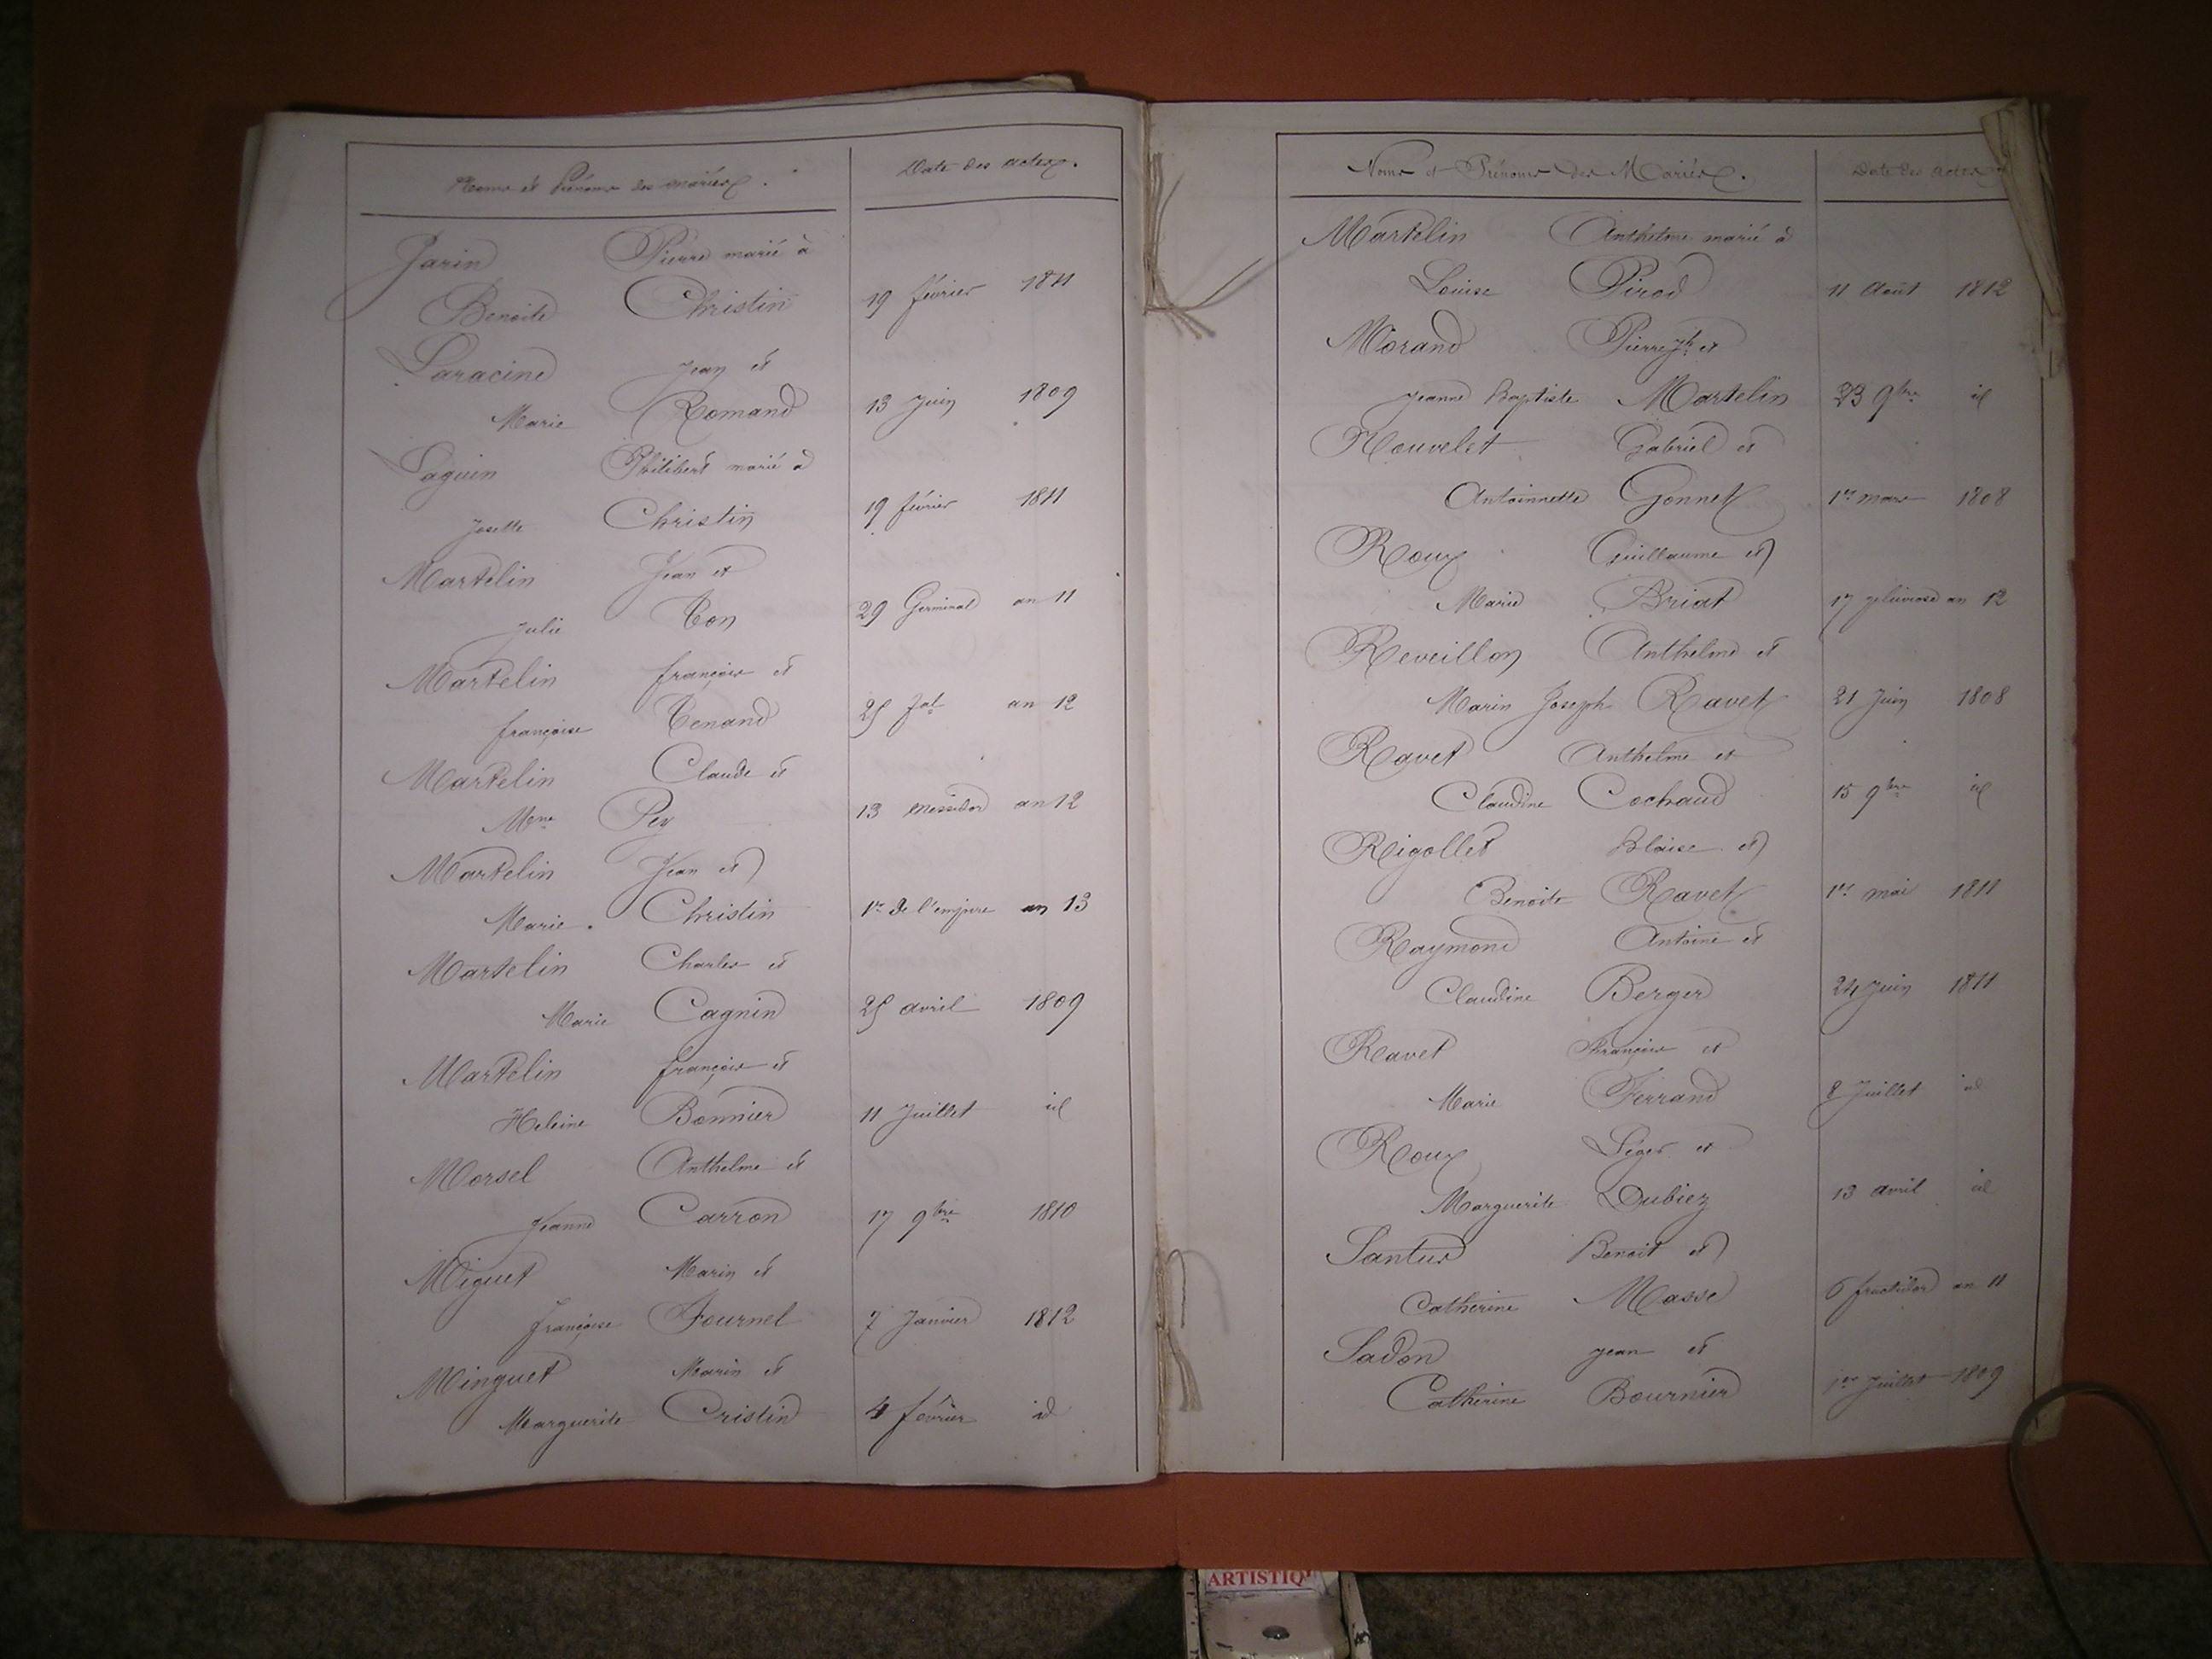 Noms et Prénoms des mariés. Date des actes.
Jarin Pierre marié à
Benoite Christin 19 février 1811
Laracine Jean et
Marie Romand 13 Juin 1809
Laguin Philibert marié à
Josette Christin 19 février 1811
Martelin Jean et
Julie Ton 29 Germinal an 11
Martelin françois et
françoise Tenand 25 an 12
Martelin Claude et
Mme Pey 13 messidor an 12
Martelin Jean et
Marie Christin 1er de l'empire an 13
Martelin Charles et
Marie Cagnin 25 avril 1809
Martelin françois et
Heleine Bonnier 11 Juillet id
Morsel Anthelme et
Jeanne Carron 17 9bre 1810
Miguet Marin et
françoise Fournel 7 Janvier 1812
Minguet Marin et
Marguerite Cristin 4 février id
Noms et Prénoms des Mariés. Date des actes
Martelin Anthelme marié à
Louise Pirod 11 Août 1812
Morand Pierre Jh et
Jeanne Baptiste Martelin 23 9bre id
Nouvelet Gabriel et
Antoinnette Gonnet 1er mars 1808
Roux Guillaume et
Marie Briat 17 pluviose an 12
Reveillon Anthelme et
Marin Joseph Ravet 21 Juin 1808
Ravet Anthelme et
Claudine Cochaud 15 9bre id
Rigollet Blaise et
Benoite Ravet 1er mai 1811
Raymond Antoine et
Claudine Berger 24 Juin 1811
Ravet François et
Marie Ferrand 8 Juillet id
Roux Léger et
Marguerite Dubiez 13 avril id
Santus Benoit et
Catherine Masse 6 fructidor an 11
Sadon Jean et
Catherine Bournier 1er Juillet 1809
ARTISTIQ